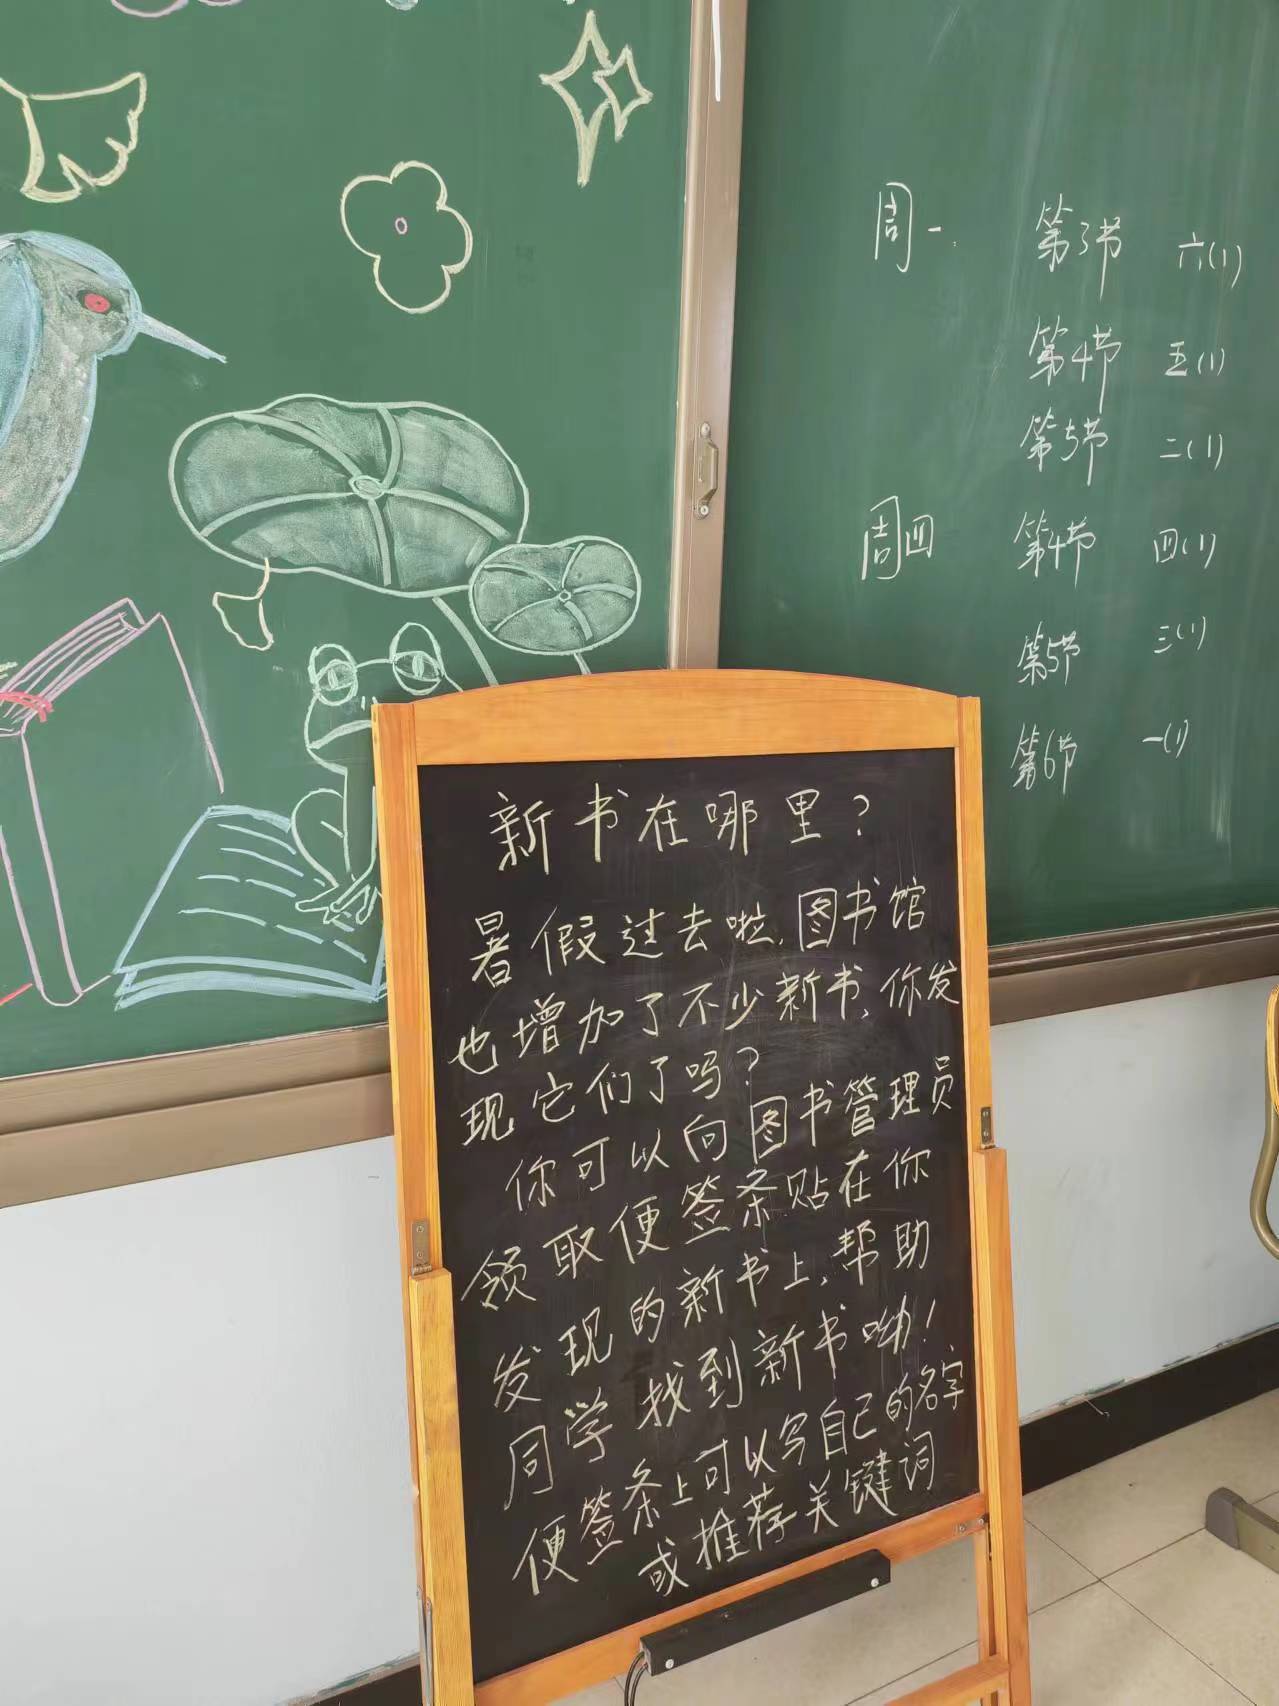 周一. 第3节 六(1)
第4节 五(1)
第5节 二(1)
周四 第4节 四(1)
第5节 三(1)
第6节 一(1)
新书在哪里?
暑假过去啦,图书馆
也增加了不少新书,你发
现它们了吗?
你可以向图书管理员
领取便签条贴在你
发现的新书上,帮助
同学找到新书呦!
便签条上可以写自己的名字
或推荐关键词